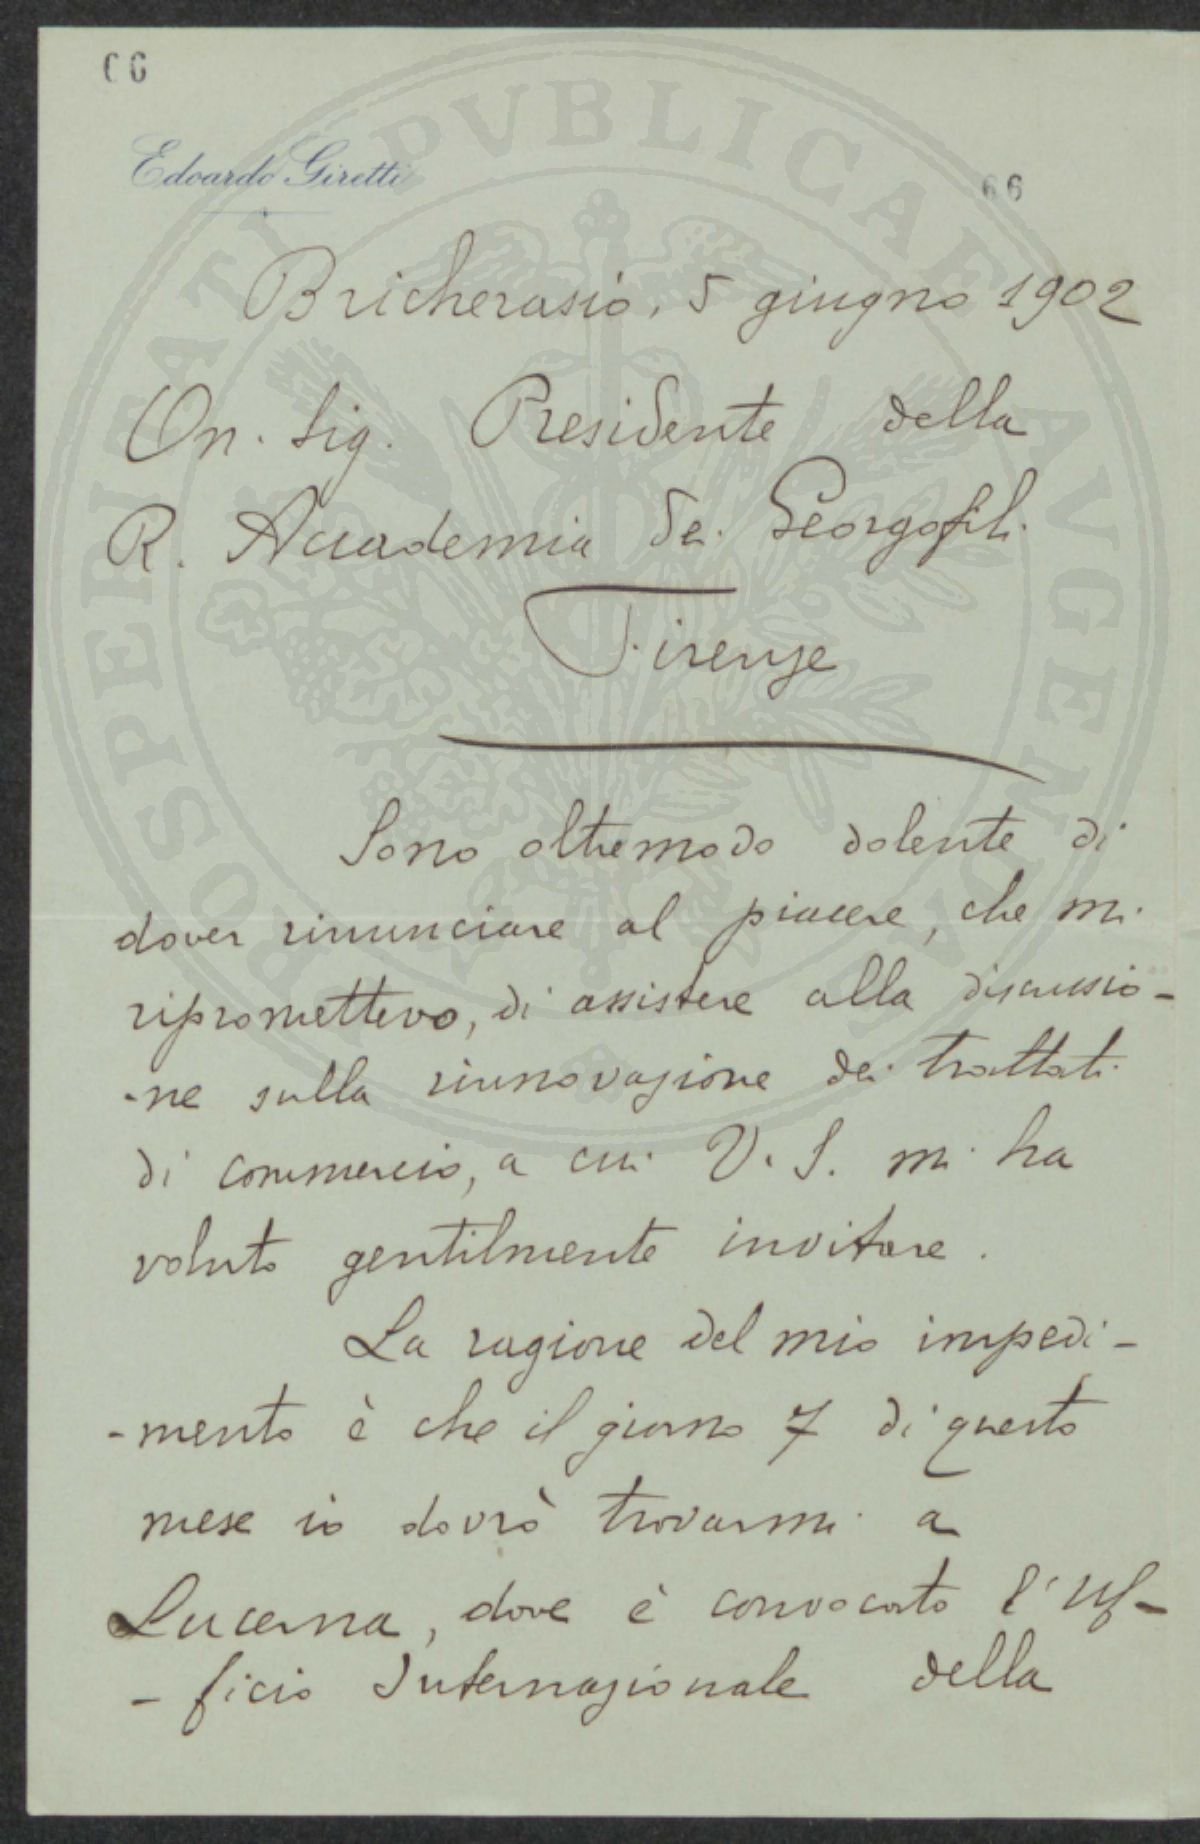 66
Edoardo Giretti
66
PROSPERITATI PVBLICAE AVGENDAE
Bricherasio, 5 giugno 1902
On. Sig. Presidente della
R. Accademia dei Georgofili
Firenze
Sono oltremodo dolente di
dover rinunciare al piacere, che mi
ripromettevo, di assistere alla discussio-
-ne sulla rinnovazione dei trattati
di commercio, a cui V. S. mi ha
voluto gentilmente invitare.
La ragione del mio impedi-
-mento è che il giorno 7 di questo
mese io dovrò trovarmi a
Lucerna, dove è convocato l'Uf-
-ficio Internazionale della